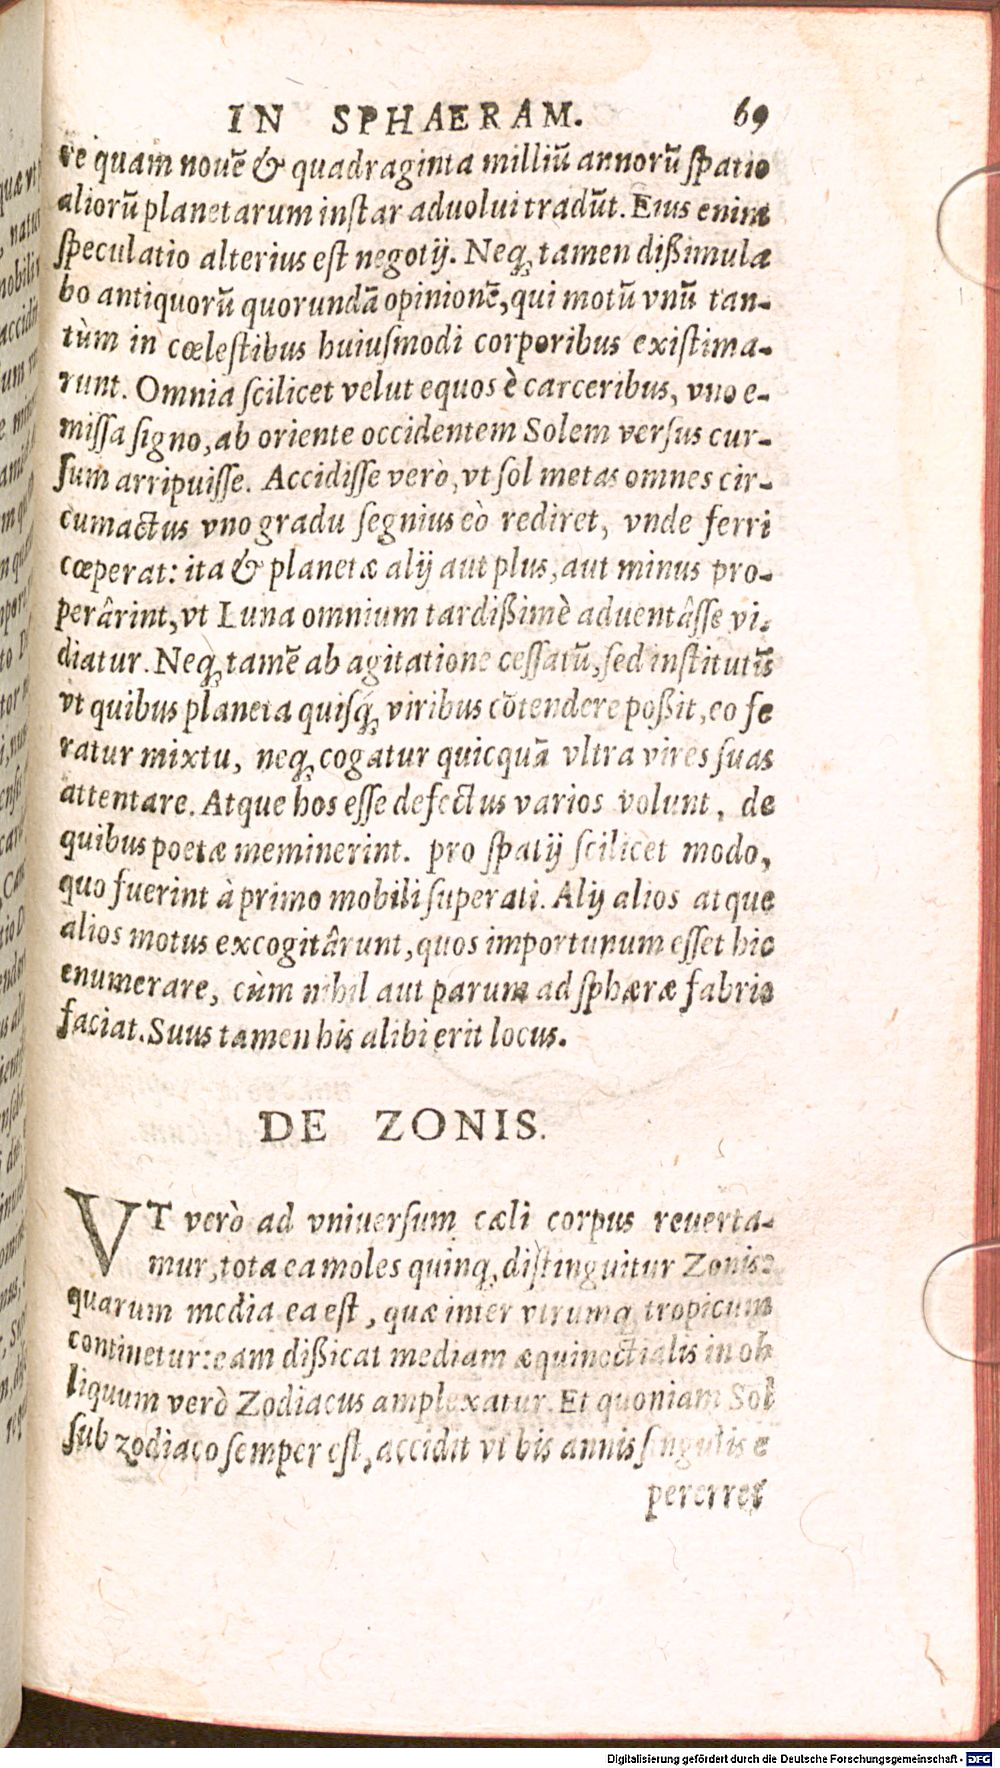 IN SPHAERAM. 69
re quam nouē & quadraginta milliū annorū spatio
aliorū planetarum instar aduolui tradūt. Eius enim
speculatio alterius est negotij. Neq; tamen dißimula
bo antiquorū quorundā opinionē, qui motū vnū tan-
tùm in cœlestibus huiusmodi corporibus existima-
runt. Omnia scilicet velut equos è carceribus, vno e-
missa signo, ab oriente occidentem Solem versus cur-
sum arripuisse. Accidisse verò, vt sol metas omnes cir-
cumactus vno gradu segnius eò rediret, vnde ferri
cœperat: ita & planetæ alij aut plus, aut minus pro-
perârint, vt Luna omnium tardißimè aduentâsse vi-
diatur. Neq; tamē ab agitatione cessatū, sed institutū
vt quibus planeta quisq; viribus cōtendere poßit, eo fe
ratur mixtu, neq; cogatur quicquā vltra vires suas
attentare. Atque hos esse defectus varios volunt, de
quibus poetæ meminerint. pro spatij scilicet modo,
quo fuerint à primo mobili superati. Alij alios atque
alios motus excogitârunt, quos importunum esset hic
enumerare, cùm nihil aut parum ad sphæræ fabric
faciat. Suus tamen his alibi erit locus.
DE ZONIS.
VT verò ad vniuersum cæli corpus reuerta-
mur, tota ea moles quinq; distinguitur Zonis:
quarum media ea est, quæ inter vtrumq; tropicum
continetur: eam dißicat mediam æquinoctialis in ob
liquum verò Zodiacus amplexatur. Et quoniam Sol
sub zodiaco semper est, accidit vt bis annis singulis e
pererret
Digitalisierung gefördert durch die Deutsche Forschungsgemeinschaft - DFG